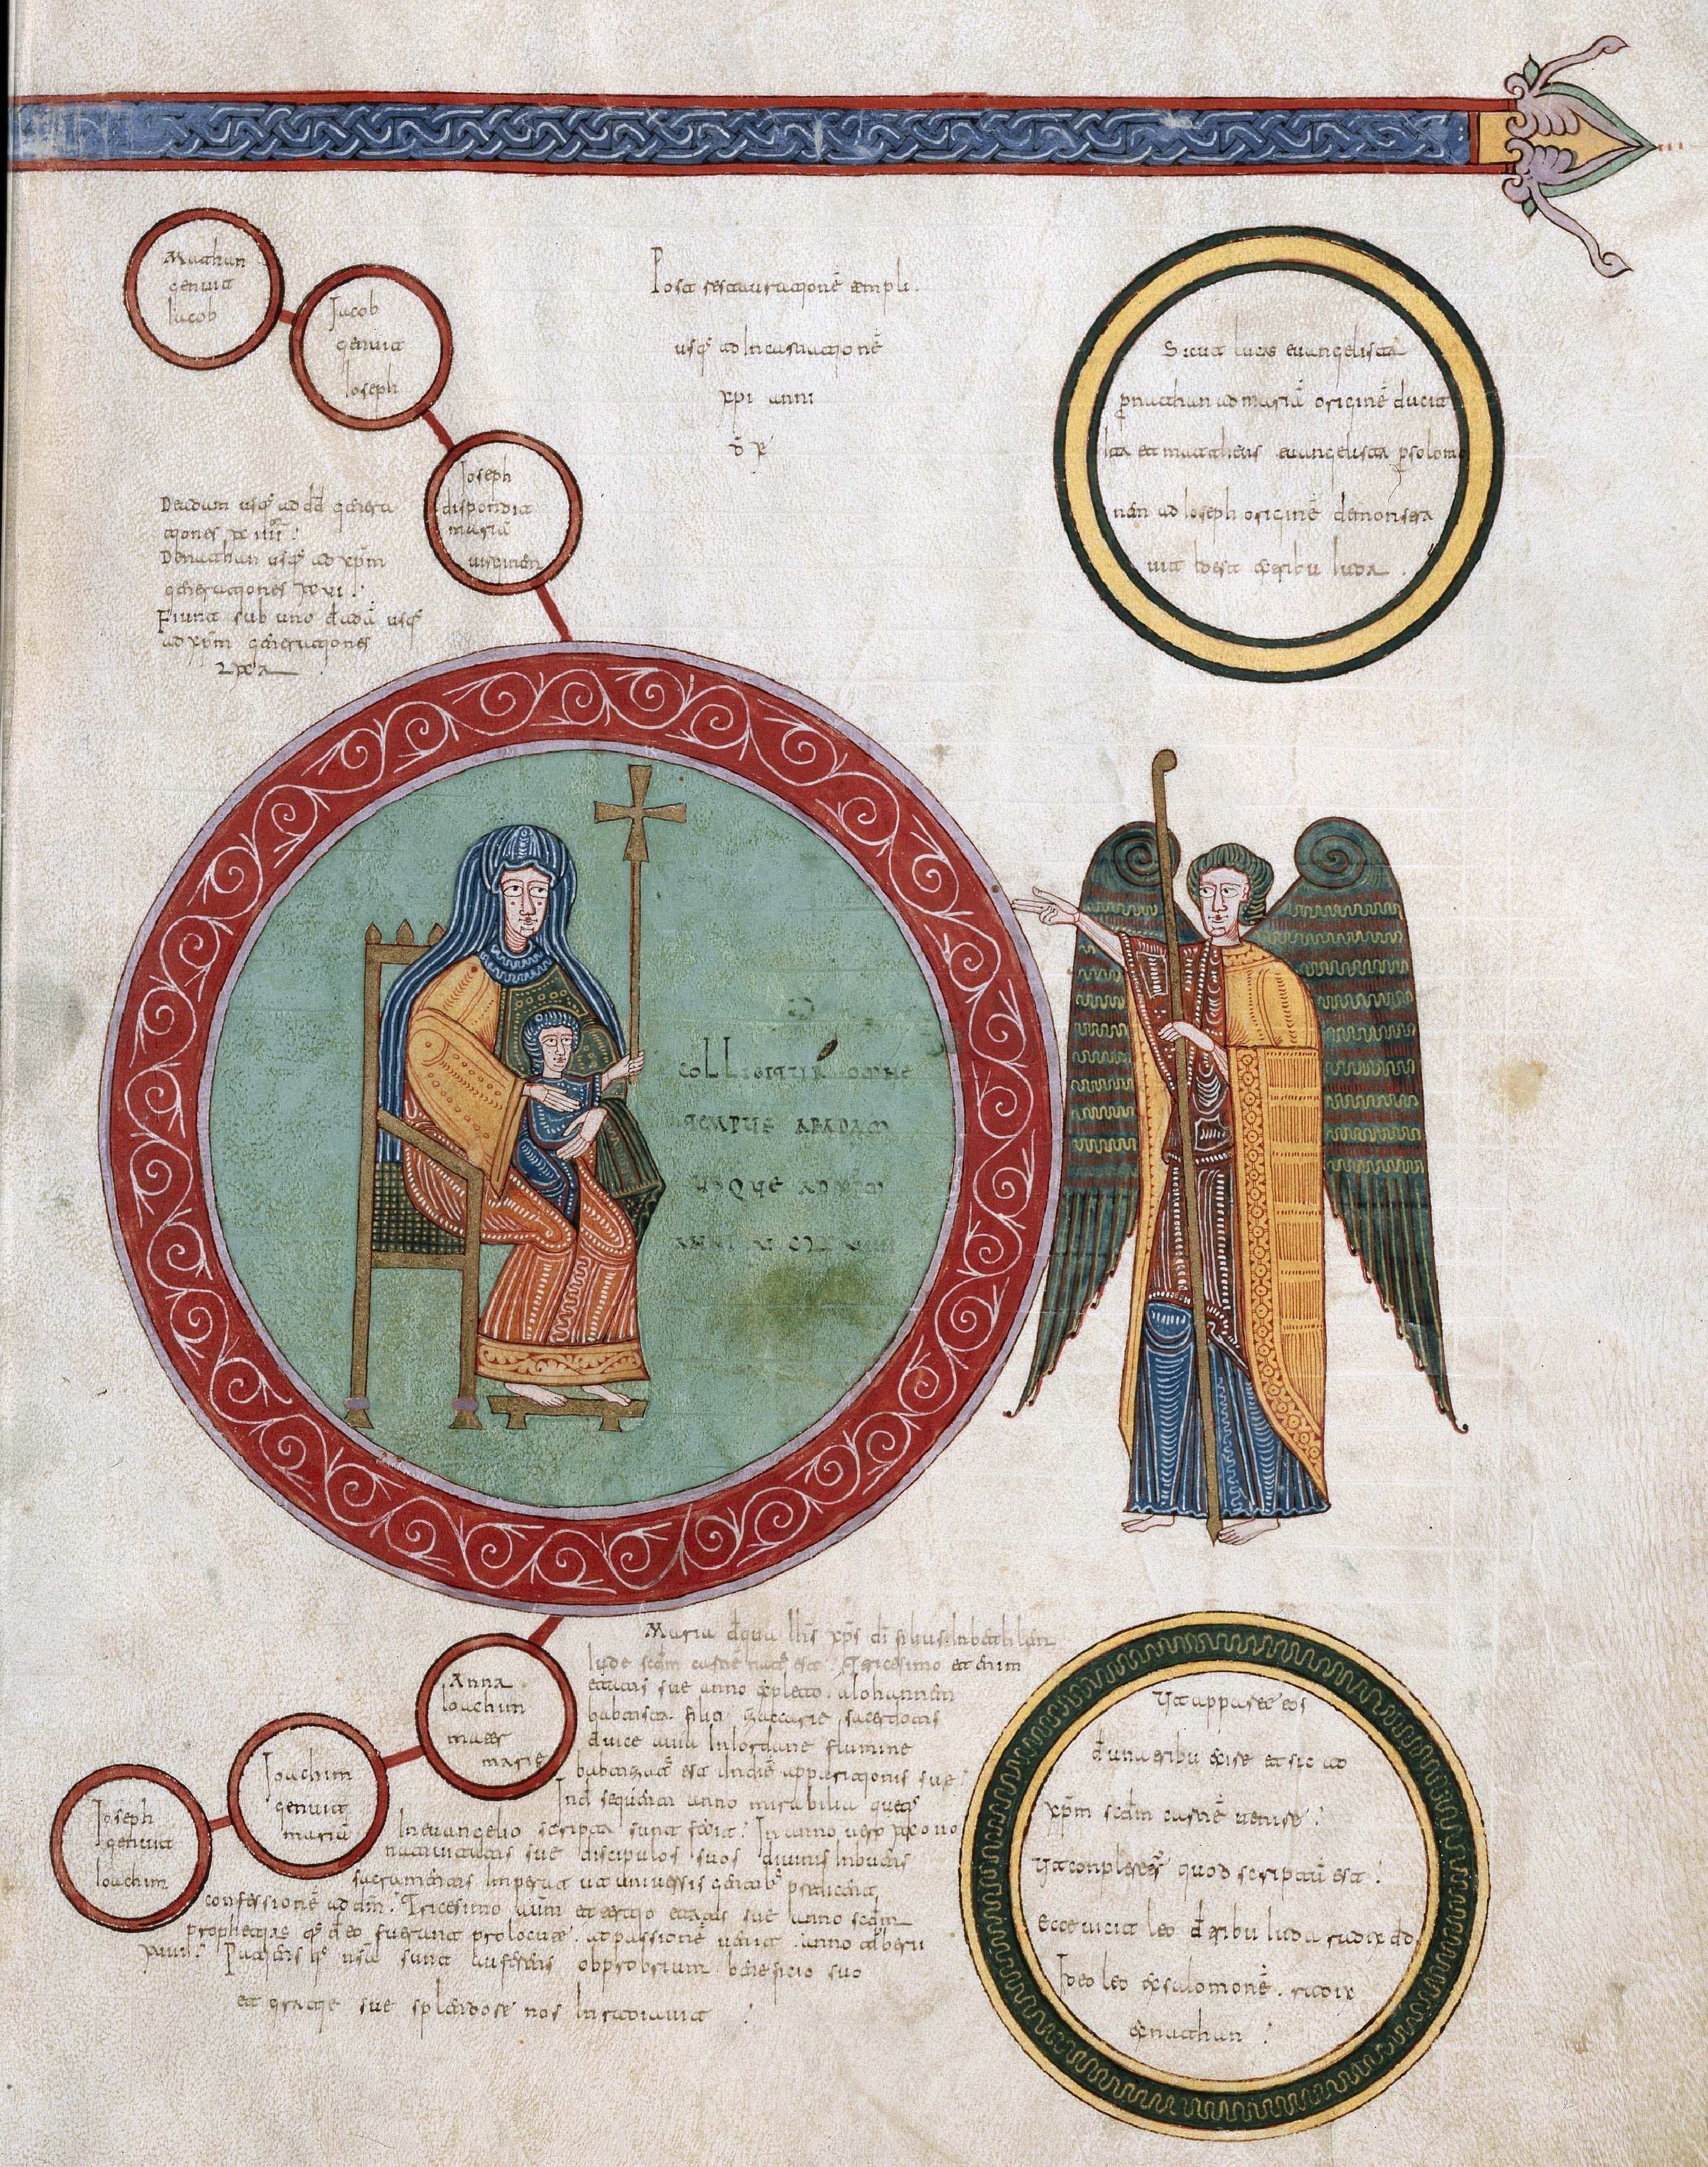 Mathan
genuit
Iacob
Iacob
genuit
Ioseph
Ioseph
dispondit
mariā
uirginem
Post restauratjonē templi
usq̄ ad Incarnatjonē
xp̄i anni
d x̄
Sicut lucas euangelista
p̄ nathan ad mariā originē ducit
Ita et matheus euangelista p̄ solomo
nem ad Ioseph originē demonstra
uit Idest ex tribu Iuda
De adam usq̄ ad dd̄ genera
tjones
De nathan usq̄ ad xp̄m
generatjones
Fiunt sub uno de adā usq̄
ad xp̄m generatjones
COLLIGITUR OMNE
TEMPUS AB ADAM
USQUE AD XP̄M
ANNI
Anna
Ioachim
mater
marie
Ioachim
genuit
mariā
Ioseph
genuit
Ioachim
Maria de qua Ihs xp̄s dī filius In bethlem
Iude scdm carnē natus est Tricesimo etenim
etatis sue anno cōpleto a Iohannem
babtista filio zaccarie sacerdotis
In Iordane flumine
babtizatus est Indiē apparitjonis sue
Inde sequenti anno mirabilia queq̄
In euangelio scripta sunt fecit In anno uero
natiuitatis sue discipulos suos diuinis Inbutis
sacramentis Imperat ut uniuersis gentibus predicent
confessionē ad dm̄ Tricesimo aūm et tertjo etatis sue anno scdm
prophetjas q̄ de eo fuerant prolocute ad passionē uenit anno tiberii
xuiii sunt auferens obprobrium beneficio suo
et gratje sue splendore nos Inradiauit
Ut apparet eos
de una tribu exisse et sic ad
xp̄m scdm carnē uenisse
Ut conpleretur quod scriptū est
Ecce uicit leo de tribu Iuda radix dd̄
Ideo leo ex salomonē radix
ex nathan